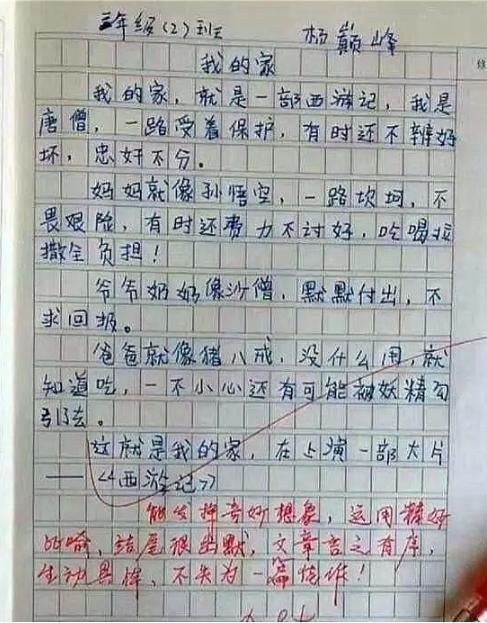 三年级(2)班 杨巅峰
我的家
我的家，就是一部西游记，我是
唐僧，一路受着保护，有时还不辨好
坏，忠奸不分。
妈妈就像孙悟空，一路坎坷，不
畏艰险，有时还费力不讨好，吃喝拉
撒全负担！
爷爷奶奶像沙僧，默默付出，不
求回报。
爸爸就像猪八戒，没什么用，就
知道吃，一不小心还有可能被妖精勾
引去。
这就是我的家，在上演一部大片
——《西游记》
能发挥奇妙想象，运用精妙
比喻，结尾很幽默，文章言之有序，
生动具体，不失为一篇佳作！